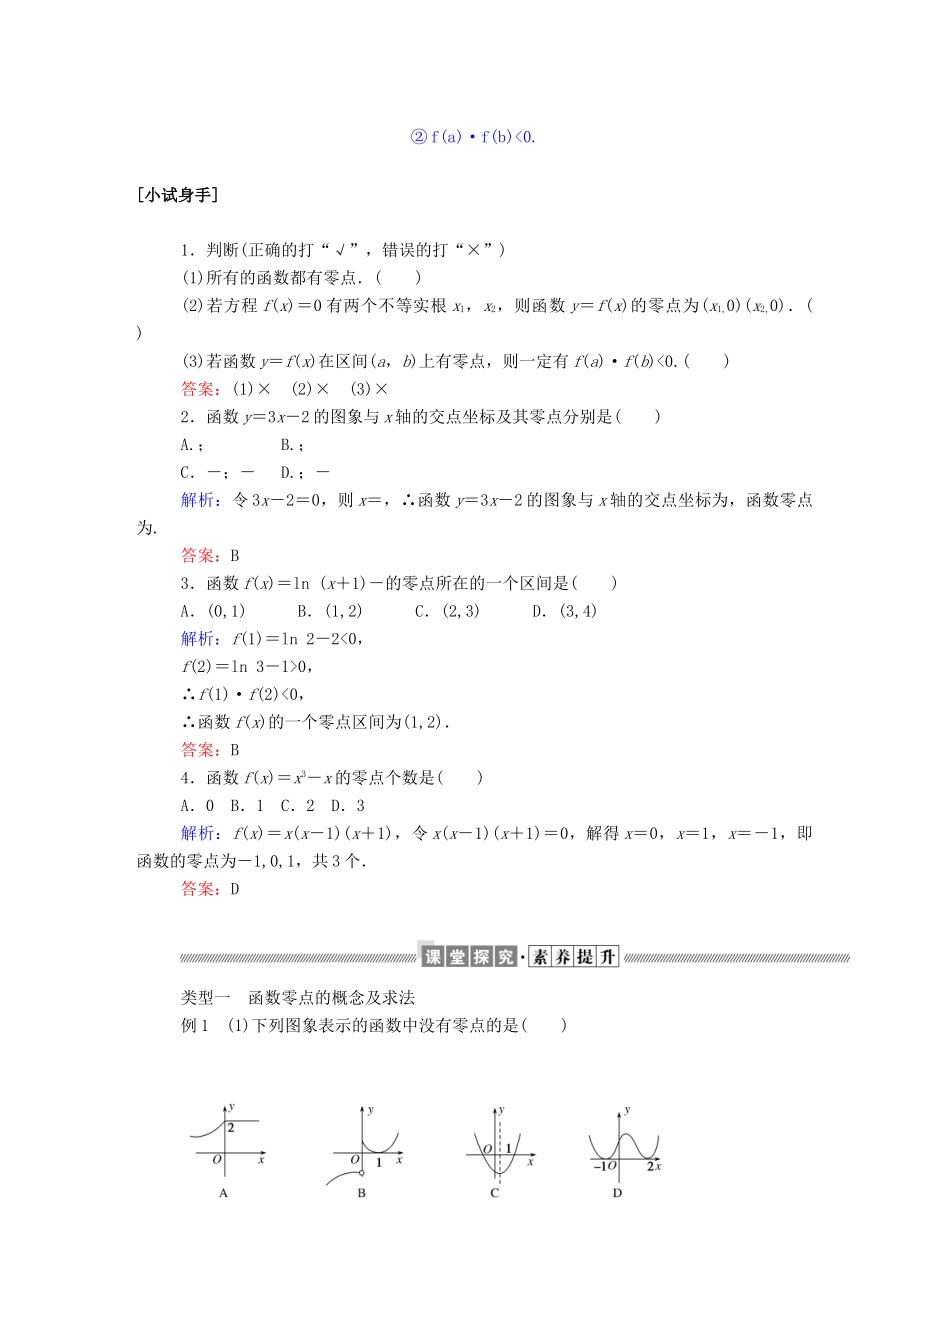 ②f(a)·f(b)<0.
[小试身手]
1．判断(正确的打“√”，错误的打“×”)
(1)所有的函数都有零点．(　　)
(2)若方程 f(x)＝0 有两个不等实根 x1，x2，则函数 y＝f(x)的零点为(x1,0)(x2,0)．(
)
(3)若函数 y＝f(x)在区间(a，b)上有零点，则一定有 f(a)·f(b)<0.(　　)
答案：(1)×　(2)×　(3)×
2．函数 y＝3x－2 的图象与 x 轴的交点坐标及其零点分别是(　　)
A.；　　B.；
C．－；－　D.；－
解析：令 3x－2＝0，则 x＝，∴函数 y＝3x－2 的图象与 x 轴的交点坐标为，函数零点
为.
答案：B
3．函数 f(x)＝ln (x＋1)－的零点所在的一个区间是(　　)
A．(0,1)　　B．(1,2)　　C．(2,3)　　D．(3,4)
解析：f(1)＝ln 2－2<0，
f(2)＝ln 3－1>0，
∴f(1)·f(2)<0，
∴函数 f(x)的一个零点区间为(1,2)．
答案：B
4．函数 f(x)＝x³－x 的零点个数是(　　)
A．0　B．1　C．2　D．3
解析：f(x)＝x(x－1)(x＋1)，令 x(x－1)(x＋1)＝0，解得 x＝0，x＝1，x＝－1，即
函数的零点为－1,0,1，共 3 个．
答案：D
课堂探究·素养提升
类型一　函数零点的概念及求法
例 1　(1)下列图象表示的函数中没有零点的是(　　)
y　y　y　y
2
O　x　O　1　x　O　1　x　－1　O　2　x
A　B　C　D